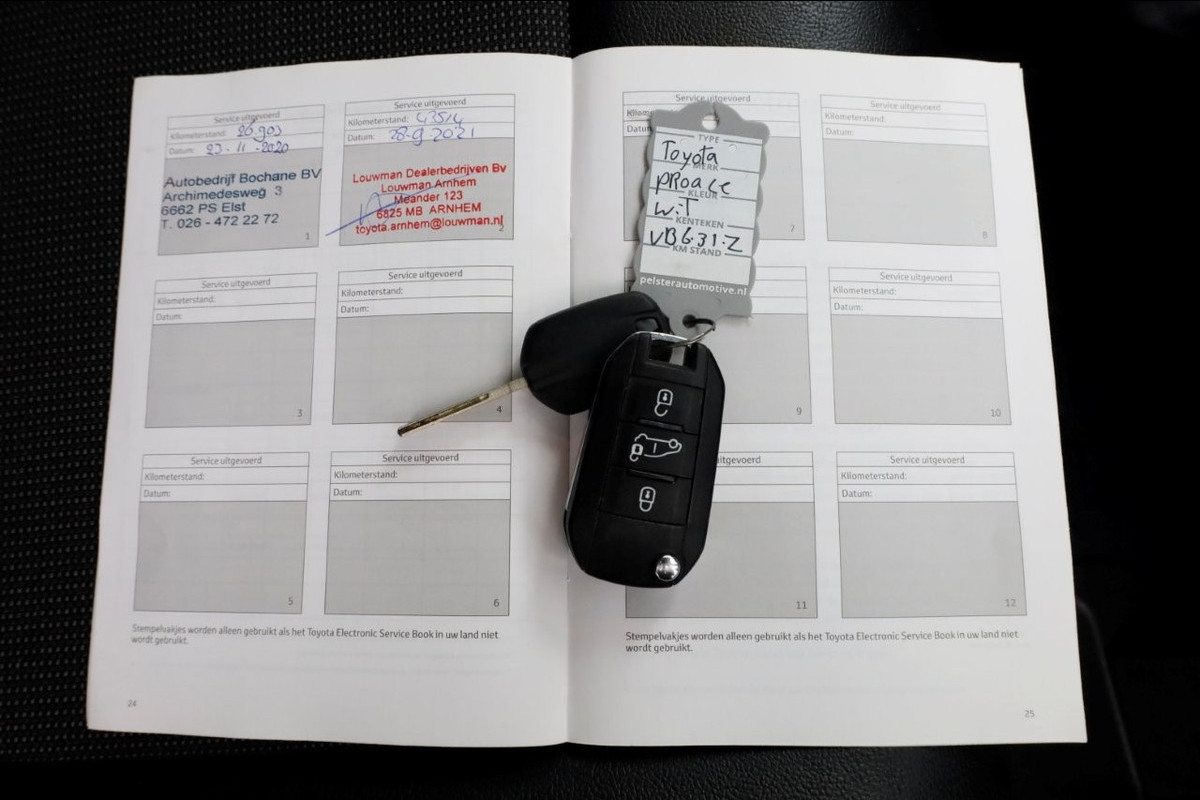 Service uitgevoerd
Kilometerstand: 26.903
Datum: 23-11-2020
Autobedrijf Bochane BV
Archimedesweg 3
6662 PS Elst
T. 026 - 472 22 72
1
Service uitgevoerd
Kilometerstand: 43514
Datum: 28-9-2021
Louwman Dealerbedrijven Bv
Louwman Arnhem
Meander 123
6825 MB ARNHEM
toyota.arnhem@louwman.nl
2
Service uitgevoerd
Kilometerstand:
Datum:
3
Service uitgevoerd
Kilometerstand:
Datum:
4
Service uitgevoerd
Kilometerstand:
Datum:
5
Service uitgevoerd
Kilometerstand:
Datum:
6
Stempelvakjes worden alleen gebruikt als het Toyota Electronic Service Book in uw land niet
wordt gebruikt.
24
Service uitgevoerd
7
TYPE
Toyota
MERK
PRoace
KLEUR
WiT
KENTEKEN
VB631Z
KM STAND
pelsterautomotive.nl
Service uitgevoerd
Kilometerstand:
Datum:
8
9
Service uitgevoerd
Kilometerstand:
Datum:
10
11
Service uitgevoerd
Kilometerstand:
Datum:
12
Stempelvakjes worden alleen gebruikt als het Toyota Electronic Service Book in uw land niet
wordt gebruikt.
25